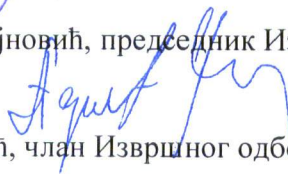 јновић, председник Из
ћ, члан Извршног одбо